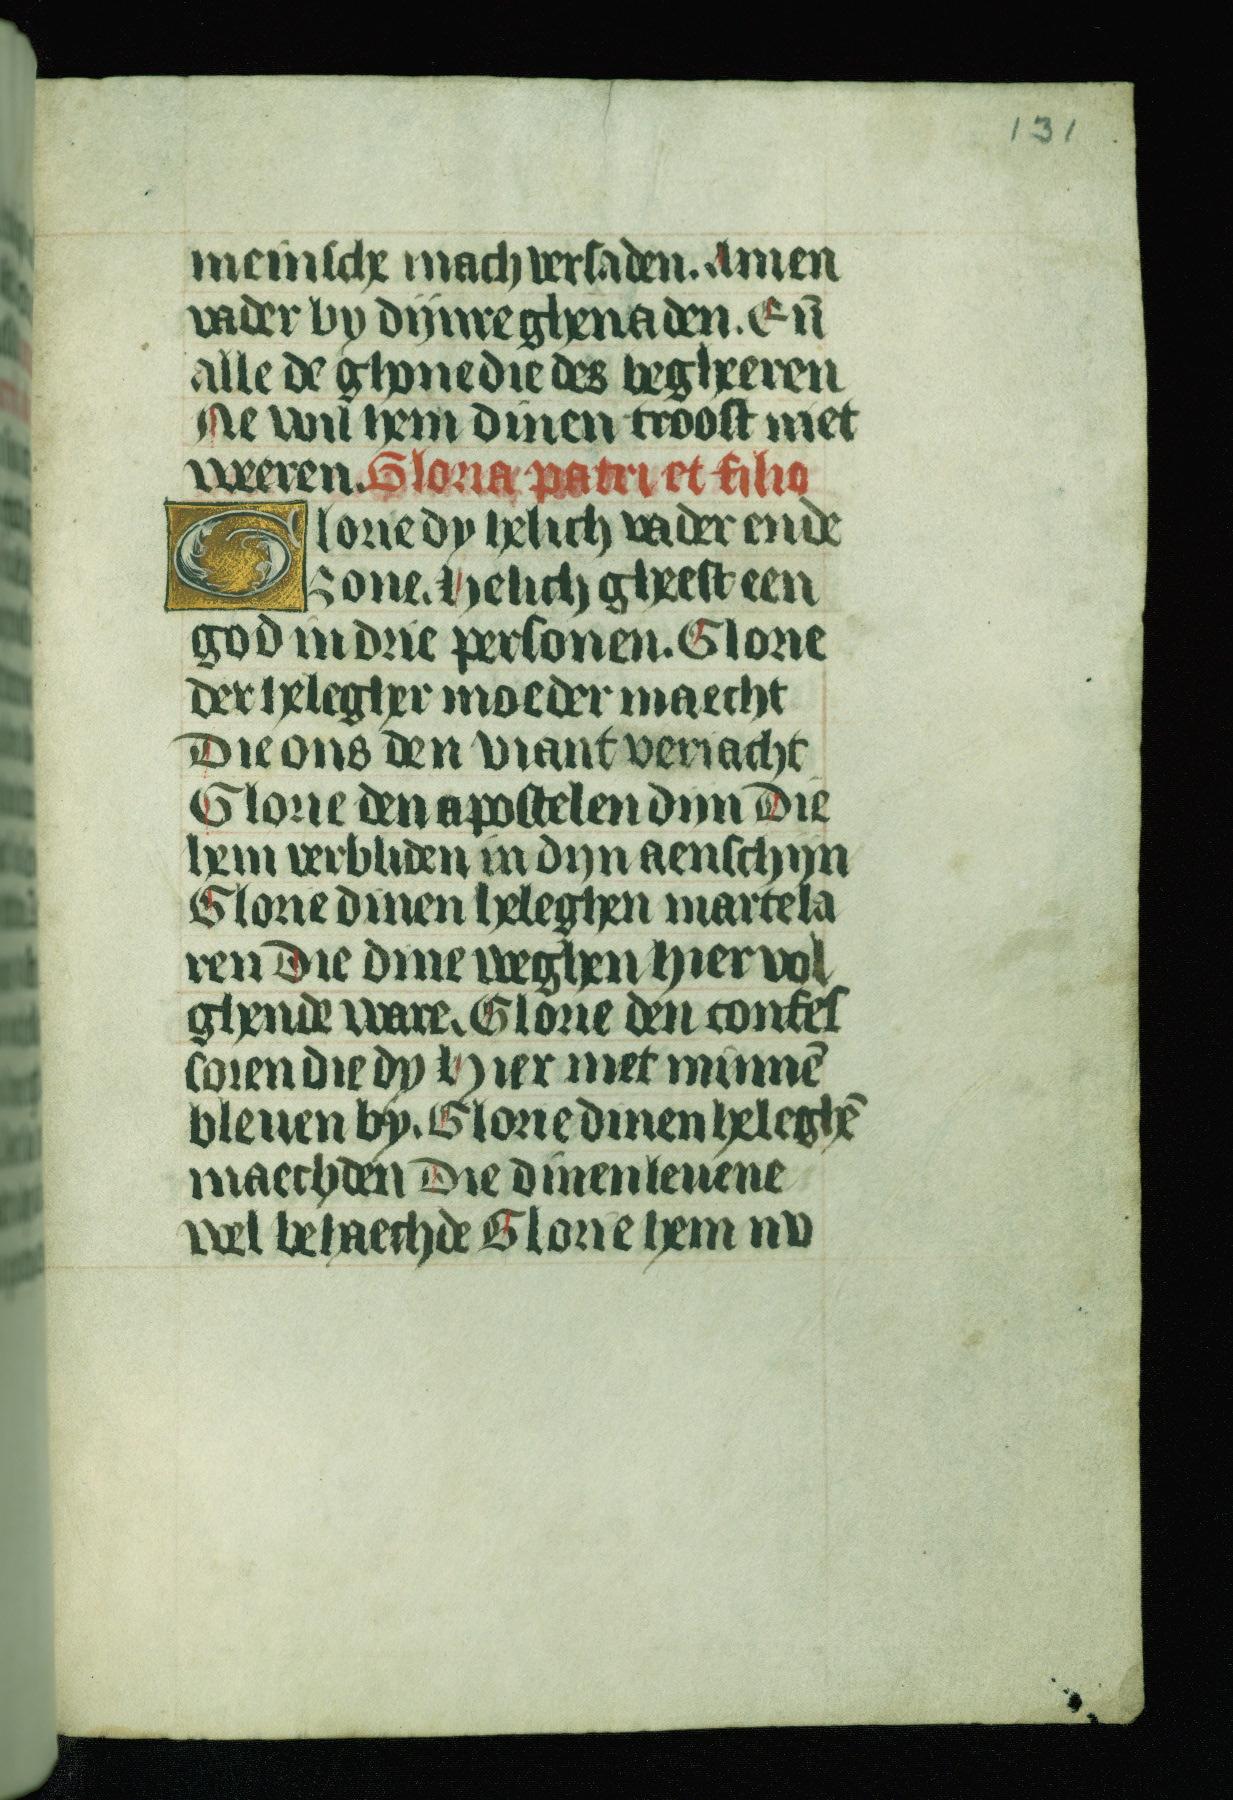 131
meinsche mach versaden. Amen
vader by dijnre ghenaden. En̄
alle de ghone die des begheeren
Ne wil hem dinen troost niet
weeren. Gloria patri et filio
Glorie dy helich vader ende
Sone. Helich gheest een
god in drie personen. Glorie
der helegher moeder maecht
Die ons den viant veriacht
Glorie den apostelen dijn Die
hem verbliden in dijn aenschijn
Glorie dinen heleghen martela
ren Die dine weghen hier vol
ghende ware. Glorie den confes
soren die dy hier met minnē
bleuen by. Glorie dinen heleghē
maechden Die dinen leuene
wel behaechde Glorie hem nv